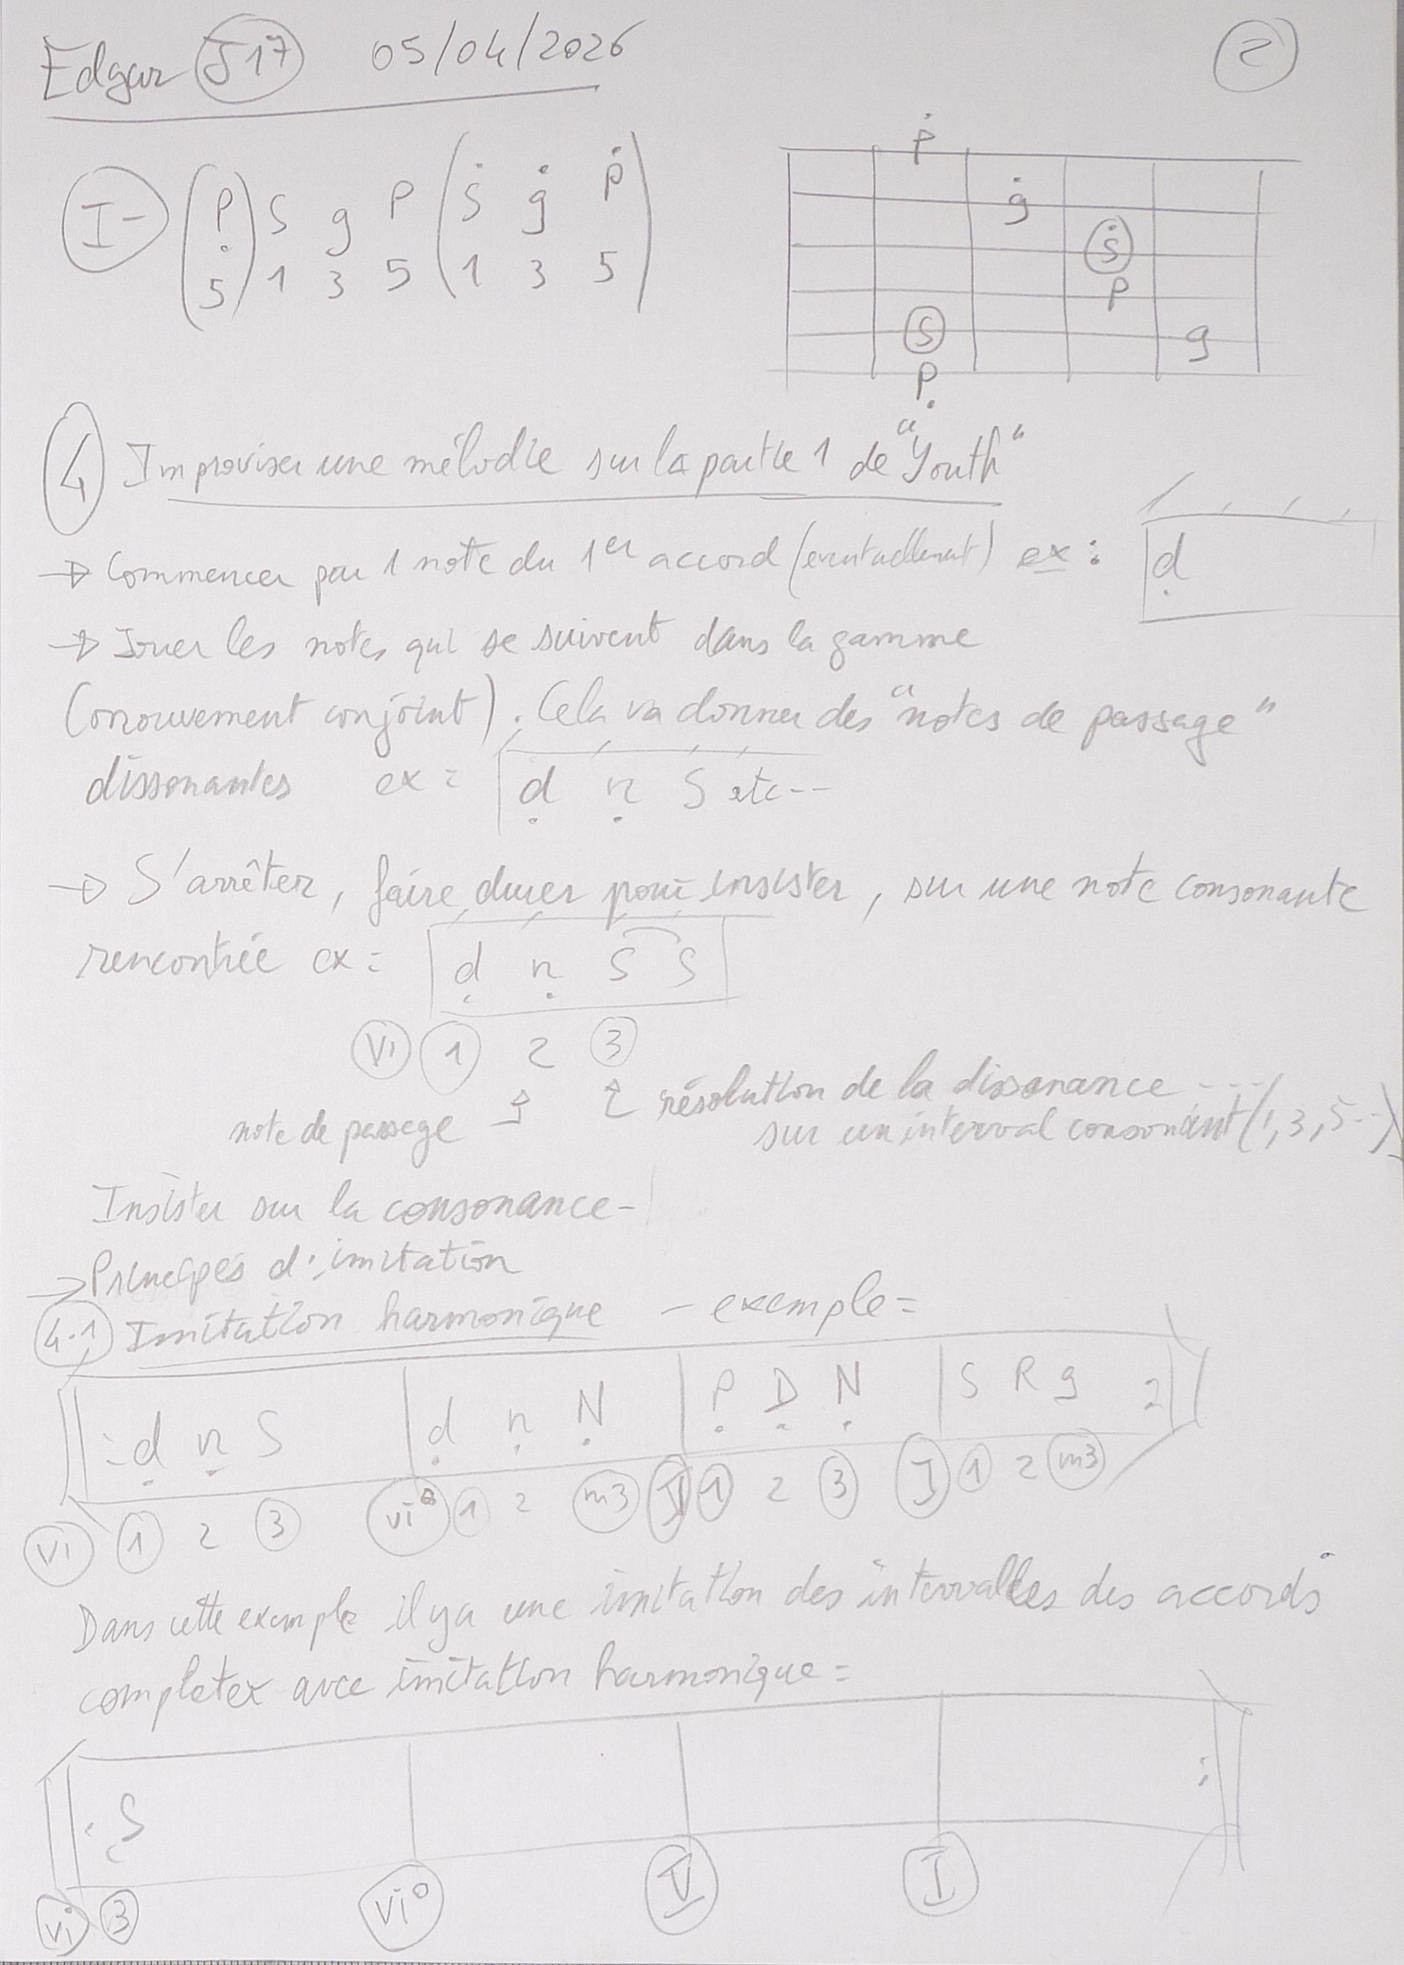 Edgar J17 05/04/2026 2
I- (P S g P (S g P)
5 1 3 5 1 3 5
P
g
S
P
S g
P
4 Improviser une mélodie sur la partie 1 de "Youth"
→ Commencer par 1 note du 1er accord (eventuellement) ex : d
→ Jouer les notes qui se suivent dans la gamme
(mouvement conjoint). Cela va donner des "notes de passage"
dissonantes ex : d n S etc--
→ S'arrêter, faire durer pour insister, sur une note consonante
rencontrée ex : d n S S
vi 1 2 3
note de passage résolution de la dissonance ----
sur un interval consonant (1, 3, 5--)
Insister sur la consonance-
→ Principes d'imitation
4.1 Imitation harmonique - exemple =
: d n S d n N P D N S R g
vi 1 2 3 vi° 1 2 m3 V 1 2 3 I 1 2 m3
Dans cette exemple il y a une imitation des intervalles des accords
completer avec imitation harmonique =
S :
vi 3 vi° V I